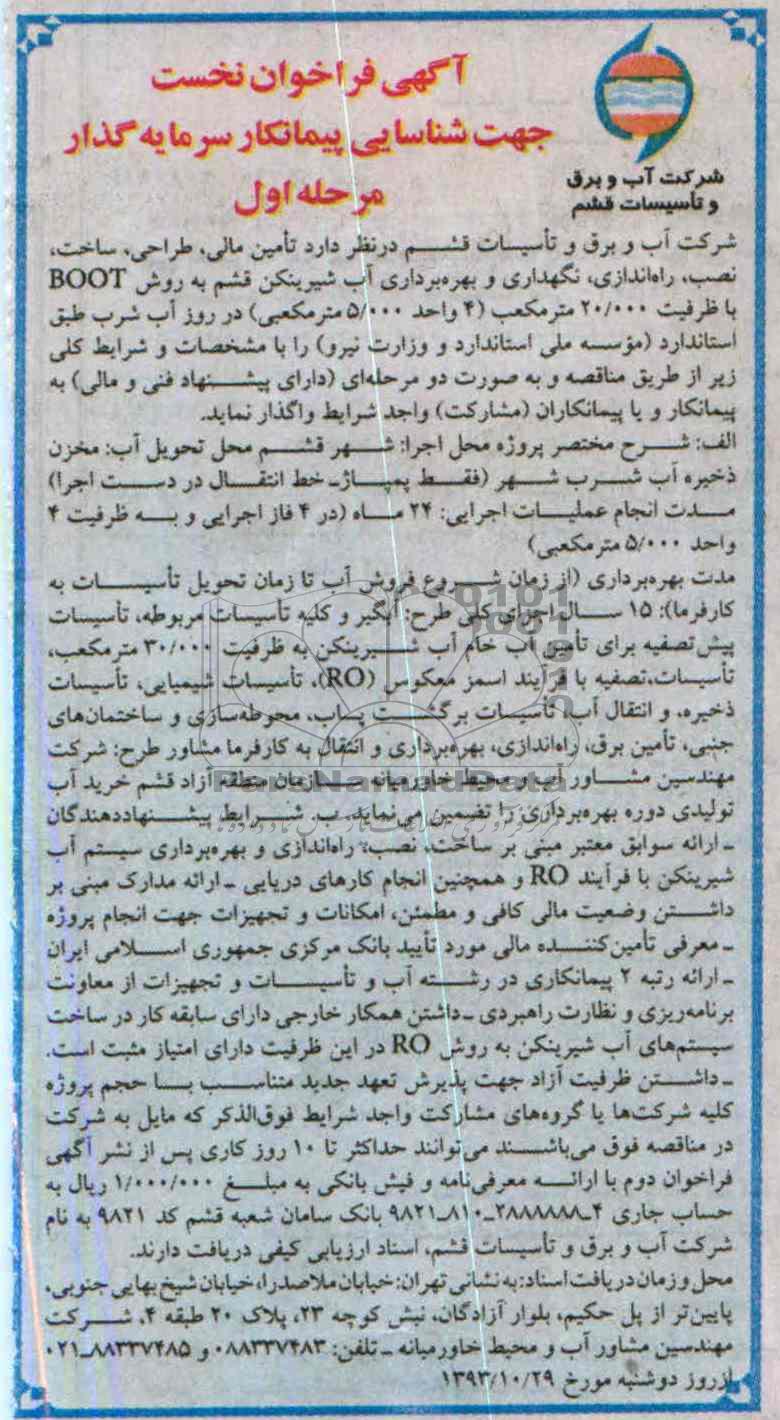 آگهی فراخوان نخست
جهت شناسایی پیمانکار سرمایه گذار
مرحله اول
شرکت آب و برق
و تأسیسات قشم
شرکت آب و برق و تأسیسات قشم درنظر دارد تأمین مالی، طراحی، ساخت،
نصب، راه‌اندازی، نگهداری و بهره‌برداری آب شیرینکن قشم به روش BOOT
با ظرفیت ۲۰/۰۰۰ مترمکعب (۴ واحد ۵/۰۰۰ مترمکعبی) در روز آب شرب طبق
استاندارد (مؤسسه ملی استاندارد و وزارت نیرو) را با مشخصات و شرایط کلی
زیر از طریق مناقصه و به صورت دو مرحله‌ای (دارای پیشنهاد فنی و مالی) به
پیمانکار و یا پیمانکاران (مشارکت) واجد شرایط واگذار نماید.
الف: شرح مختصر پروژه محل اجرا: شهر قشم محل تحویل آب: مخزن
ذخیره آب شرب شهر (فقط پمپاژ- خط انتقال در دست اجرا)
مدت انجام عملیات اجرایی: ۲۴ ماه (در ۴ فاز اجرایی و به ظرفیت ۴
واحد ۵/۰۰۰ مترمکعبی)
مدت بهره‌برداری (از زمان شروع فروش آب تا زمان تحویل تأسیسات به
کارفرما): ۱۵ سال اجزای کلی طرح: آبگیر و کلیه تأسیسات مربوطه، تأسیسات
پیش تصفیه برای تأمین آب خام آب شیرینکن به ظرفیت ۳۰/۰۰۰ مترمکعب،
تأسیسات،تصفیه با فرآیند اسمز معکوس (RO)، تأسیسات شیمیایی، تأسیسات
ذخیره، و انتقال آب، تأسیسات برگشت پساب، محوطه‌سازی و ساختمان‌های
جنبی، تأمین برق، راه‌اندازی، بهره‌برداری و انتقال به کارفرما مشاور طرح: شرکت
مهندسین مشاور آب و محیط خاورمیانه سازمان منطقه آزاد قشم خرید آب
تولیدی دوره بهره‌برداری را تضمین می‌نماید. ب. شرایط پیشنهاددهندگان
- ارائه سوابق معتبر مبنی بر ساخت، نصب، راه‌اندازی و بهره‌برداری سیستم آب
شیرینکن با فرآیند RO و همچنین انجام کارهای دریایی - ارائه مدارک مبنی بر
داشتن وضعیت مالی کافی و مطمئن، امکانات و تجهیزات جهت انجام پروژه
- معرفی تأمین‌کننده مالی مورد تأیید بانک مرکزی جمهوری اسلامی ایران
- ارائه رتبه ۲ پیمانکاری در رشته آب و تأسیسات و تجهیزات از معاونت
برنامه‌ریزی و نظارت راهبردی - داشتن همکار خارجی دارای سابقه کار در ساخت
سیستم‌های آب شیرینکن به روش RO در این ظرفیت دارای امتیاز مثبت است.
- داشتن ظرفیت آزاد جهت پذیرش تعهد جدید متناسب با حجم پروژه
کلیه شرکت‌ها یا گروه‌های مشارکت واجد شرایط فوق‌الذکر که مایل به شرکت
در مناقصه فوق می‌باشند می‌توانند حداکثر تا ۱۰ روز کاری پس از نشر آگهی
فراخوان دوم با ارائه معرفی‌نامه و فیش بانکی به مبلغ ۱/۰۰۰/۰۰۰ ریال به
حساب جاری ۴-۲۸۸۸۸۸۸-۸۱۰-۹۸۲۱ بانک سامان شعبه قشم کد ۹۸۲۱ به نام
شرکت آب و برق و تأسیسات قشم، اسناد ارزیابی کیفی دریافت دارند.
محل و زمان دریافت اسناد: به نشانی تهران: خیابان ملاصدرا، خیابان شیخ بهایی جنوبی،
پایین‌تر از پل حکیم، بلوار آزادگان، نبش کوچه ۲۳، پلاک ۲۰ طبقه ۴، شرکت
مهندسین مشاور آب و محیط خاورمیانه - تلفن: ۰۸۸۳۳۷۴۸۳ و ۸۸۳۳۷۴۸۵-۰۲۱
ازروز دوشنبه مورخ ۱۳۹۳/۱۰/۲۹
ParsNamadData